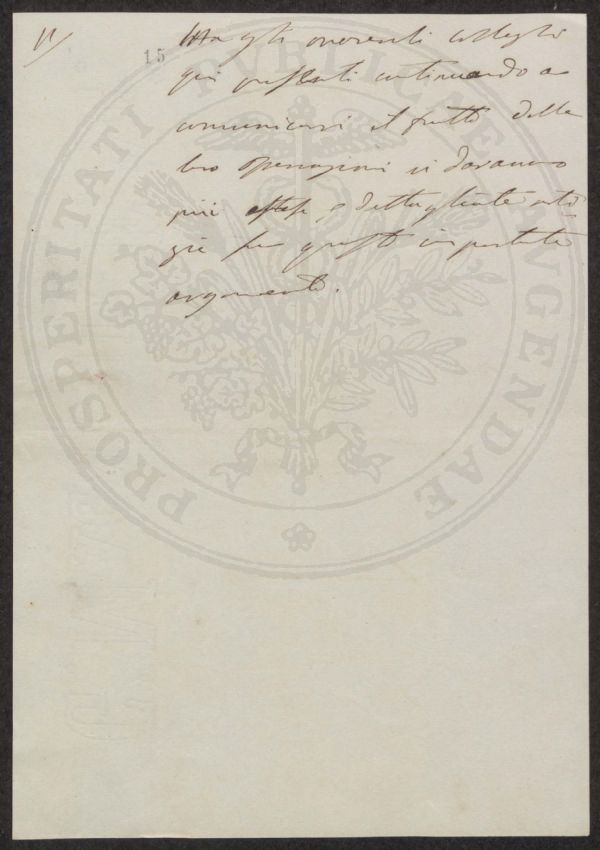 11/
15
Ma gli onorevoli colleghi
qui presenti continuando a
comunicarci il frutto delle
loro operazioni ci daranno
più estese e dettagliate noti-
zie su questo importante
argomento.
PROSPERITATI PVBLICAE AVGENDAE